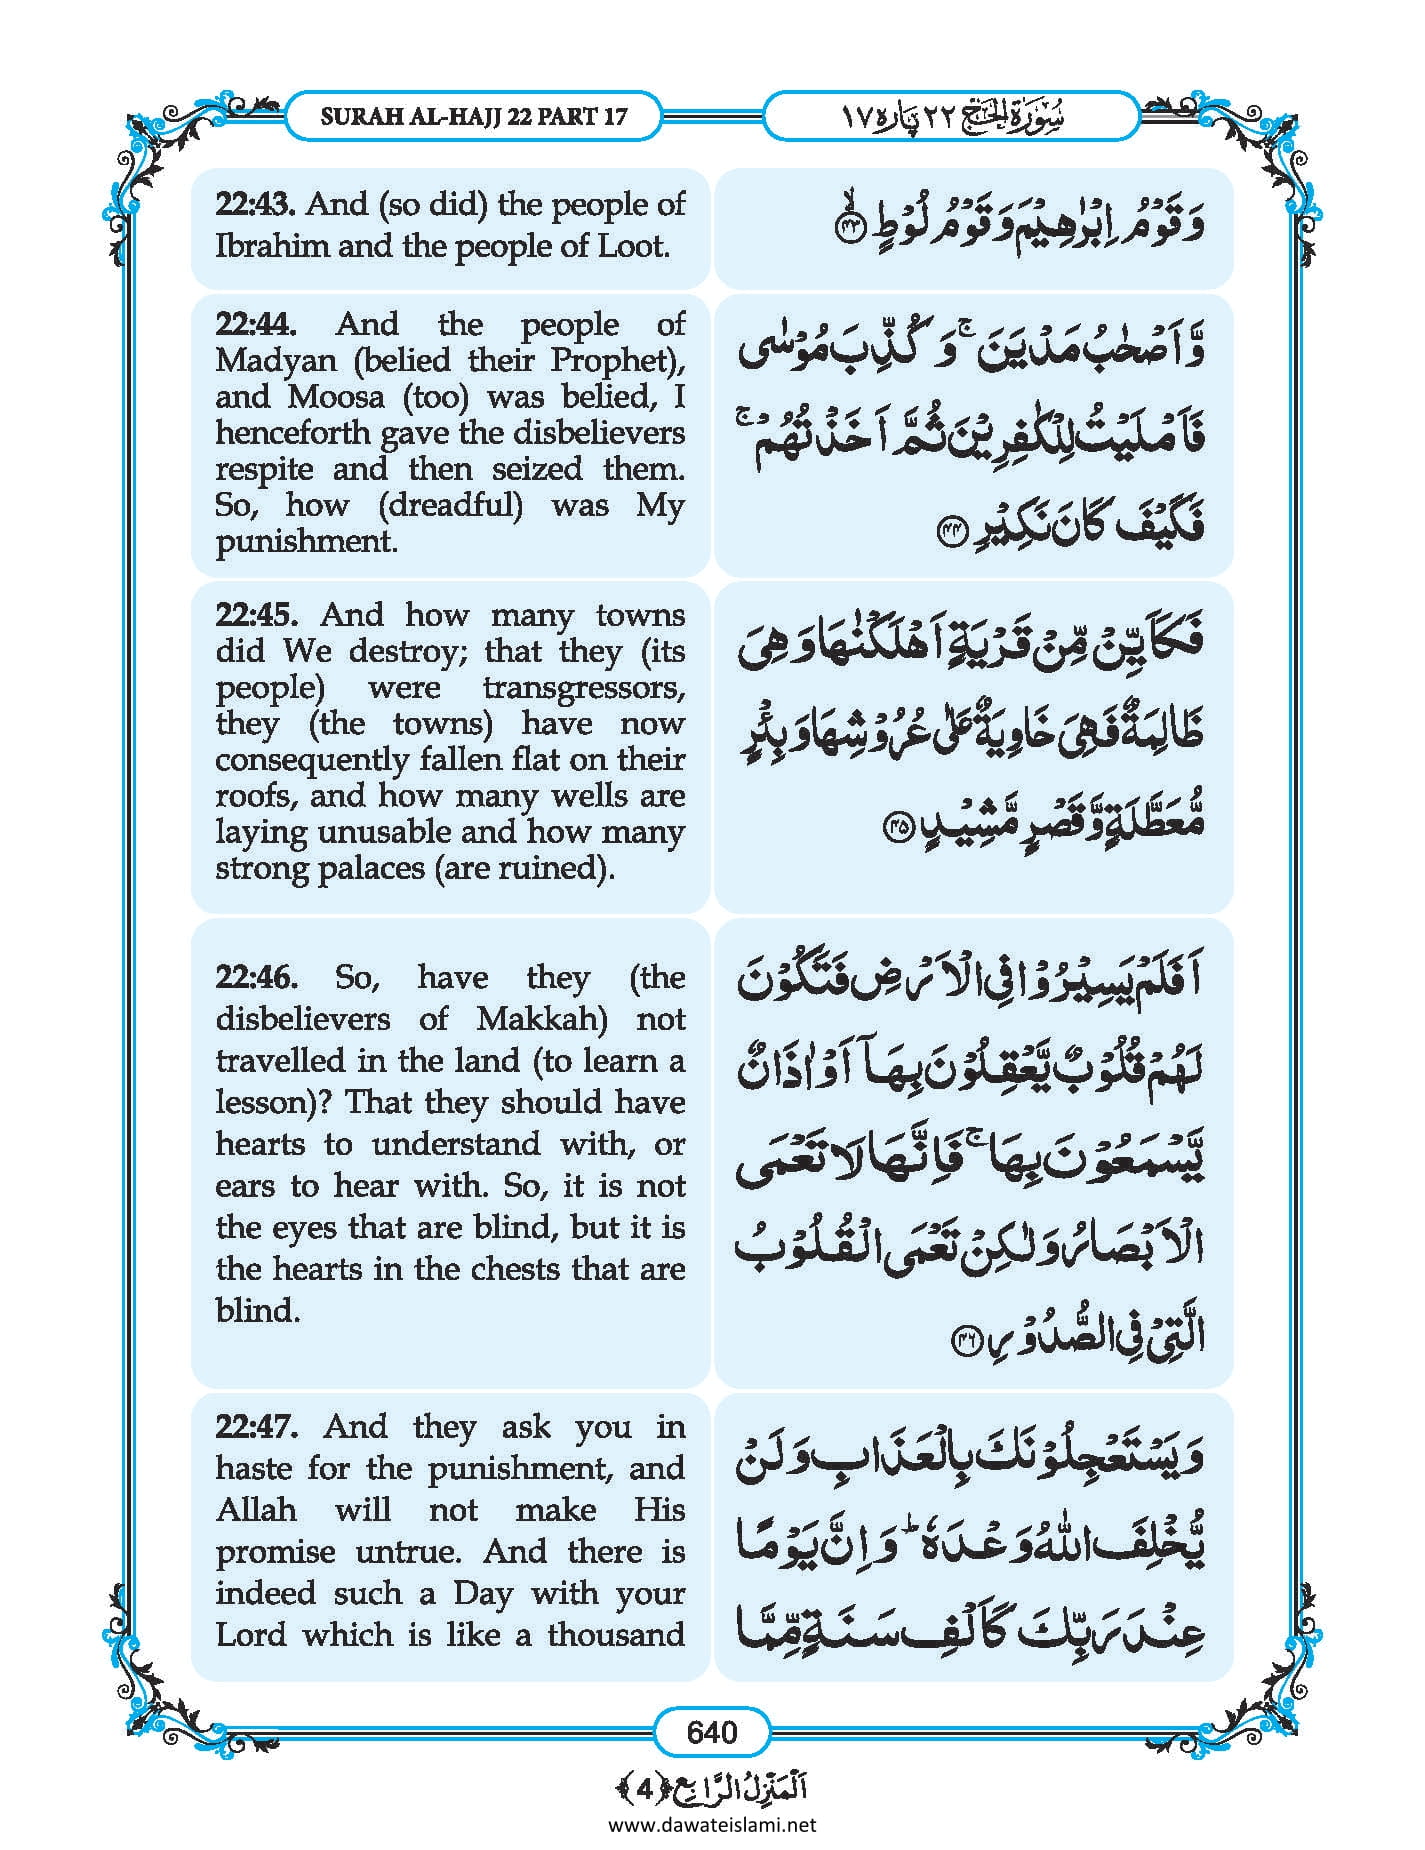 SURAH AL-HAJJ 22 PART 17
سُوْرَةُ الْحَجّ ٢٢ پاره ١٧
22:43. And (so did) the people of
Ibrahim and the people of Loot.
وَ قَوْمُ اِبْرٰهِیْمَ وَ قَوْمُ لُوْطٍۙ﴿۴۳﴾
22:44. And the people of
Madyan (belied their Prophet),
and Moosa (too) was belied, I
henceforth gave the disbelievers
respite and then seized them.
So, how (dreadful) was My
punishment.
وَّ اَصْحٰبُ مَدْیَنَۚ وَ كُذِّبَ مُوْسٰى
فَاَمْلَیْتُ لِلْكٰفِرِیْنَ ثُمَّ اَخَذْتُهُمْۚ
فَكَیْفَ كَانَ نَكِیْرِ﴿۴۴﴾
22:45. And how many towns
did We destroy; that they (its
people) were transgressors,
they (the towns) have now
consequently fallen flat on their
roofs, and how many wells are
laying unusable and how many
strong palaces (are ruined).
فَكَاَیِّنْ مِّنْ قَرْیَةٍ اَهْلَكْنٰهَا وَ هِیَ
ظَالِمَةٌ فَهِیَ خَاوِیَةٌ عَلٰى عُرُوْشِهَا وَ بِئْرٍ
مُّعَطَّلَةٍ وَّ قَصْرٍ مَّشِیْدٍ﴿۴۵﴾
22:46. So, have they (the
disbelievers of Makkah) not
travelled in the land (to learn a
lesson)? That they should have
hearts to understand with, or
ears to hear with. So, it is not
the eyes that are blind, but it is
the hearts in the chests that are
blind.
اَفَلَمْ یَسِیْرُوْا فِی الْاَرْضِ فَتَكُوْنَ
لَهُمْ قُلُوْبٌ یَّعْقِلُوْنَ بِهَاۤ اَوْ اٰذَانٌ
یَّسْمَعُوْنَ بِهَاۚ فَاِنَّهَا لَا تَعْمَى
الْاَبْصَارُ وَ لٰكِنْ تَعْمَى الْقُلُوْبُ
الَّتِیْ فِی الصُّدُوْرِ﴿۴۶﴾
22:47. And they ask you in
haste for the punishment, and
Allah will not make His
promise untrue. And there is
indeed such a Day with your
Lord which is like a thousand
وَ یَسْتَعْجِلُوْنَكَ بِالْعَذَابِ وَ لَنْ
یُّخْلِفَ اللّٰهُ وَعْدَهٗؕ وَ اِنَّ یَوْمًا
عِنْدَ رَبِّكَ كَاَلْفِ سَنَةٍ مِّمَّا
640
اَلْمَنْزِلُ الرَّابِع ﴿4﴾
www.dawateislami.net